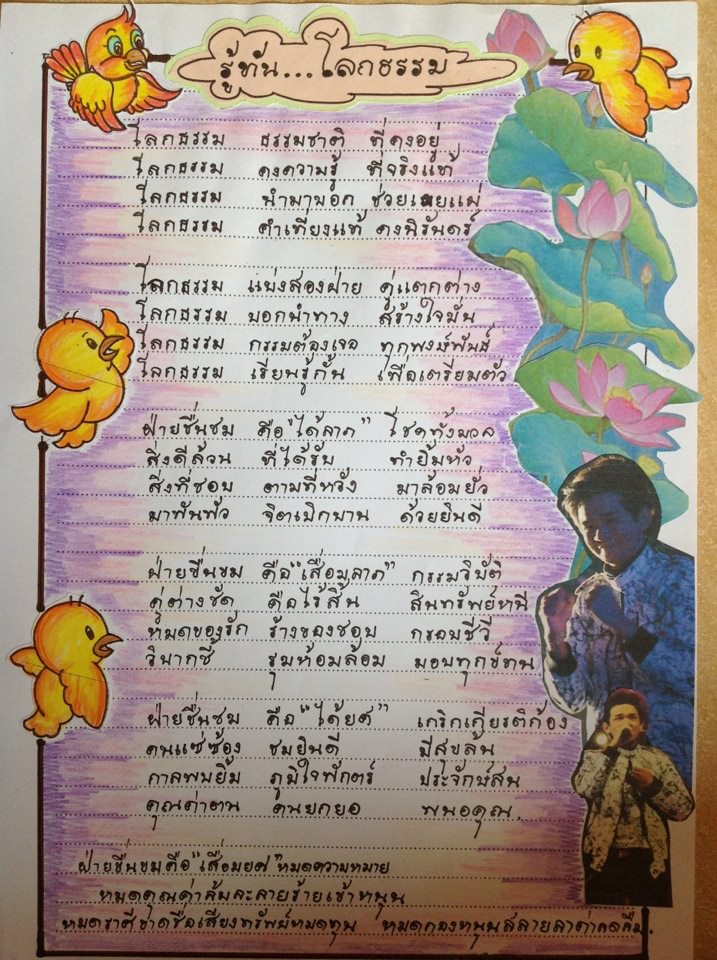 รู้ทัน...โลกธรรม
โลกธรรม ธรรมชาติ ที่คงอยู่
โลกธรรม คงความรู้ ที่จริงแท้
โลกธรรม นำมาบอก ช่วยเผยแผ่
โลกธรรม คำเที่ยงแท้ คงนิรันดร์
โลกธรรม แบ่งสองฝ่าย คู่แตกต่าง
โลกธรรม บอกนำทาง สร้างใจมั่น
โลกธรรม กรรมต้องเจอ ทุกพงษ์พันธ์
โลกธรรม เรียนรู้กัน เพื่อเตรียมตัว
ฝ่ายชื่นชม คือ"ได้ลาภ" โชคทั้งมวล
สิ่งดีล้วน ที่ได้รับ ทำยิ้มหัว
สิ่งที่ชอบ ตามที่หวัง มาล้อมยั่ว
มาพันพัว จิตเบิกบาน ด้วยยินดี
ฝ่ายขื่นขม คือ"เสื่อมลาภ" กรรมวิบัติ
คู่ต่างชัด คือไร้สิ้น สินทรัพย์หนี
หมดของรัก ร้างของชอบ กรอบชีวี
วิบากชี รุมห้อมล้อม มอบทุกข์ทน
ฝ่ายชื่นชม คือ"ได้ยศ" เกริกเกียรติก้อง
คนแซ่ซ้อง ชมยินดี มีสุขล้น
กาลพบยิ้ม ภูมิใจพักตร์ ประจักษ์สน
คุณค่าตน คนยกยอ พนอคุณ.
ฝ่ายขื่นขมคือ"เสื่อมยศ"หมดความหมาย
หมดคุณค่าล้มละลายร้ายเข้าหนุน
หมดราศีขาดชื่อเสียงทรัพย์หมดทุน หมดกองหนุนสลายลาค่าคงคืน.